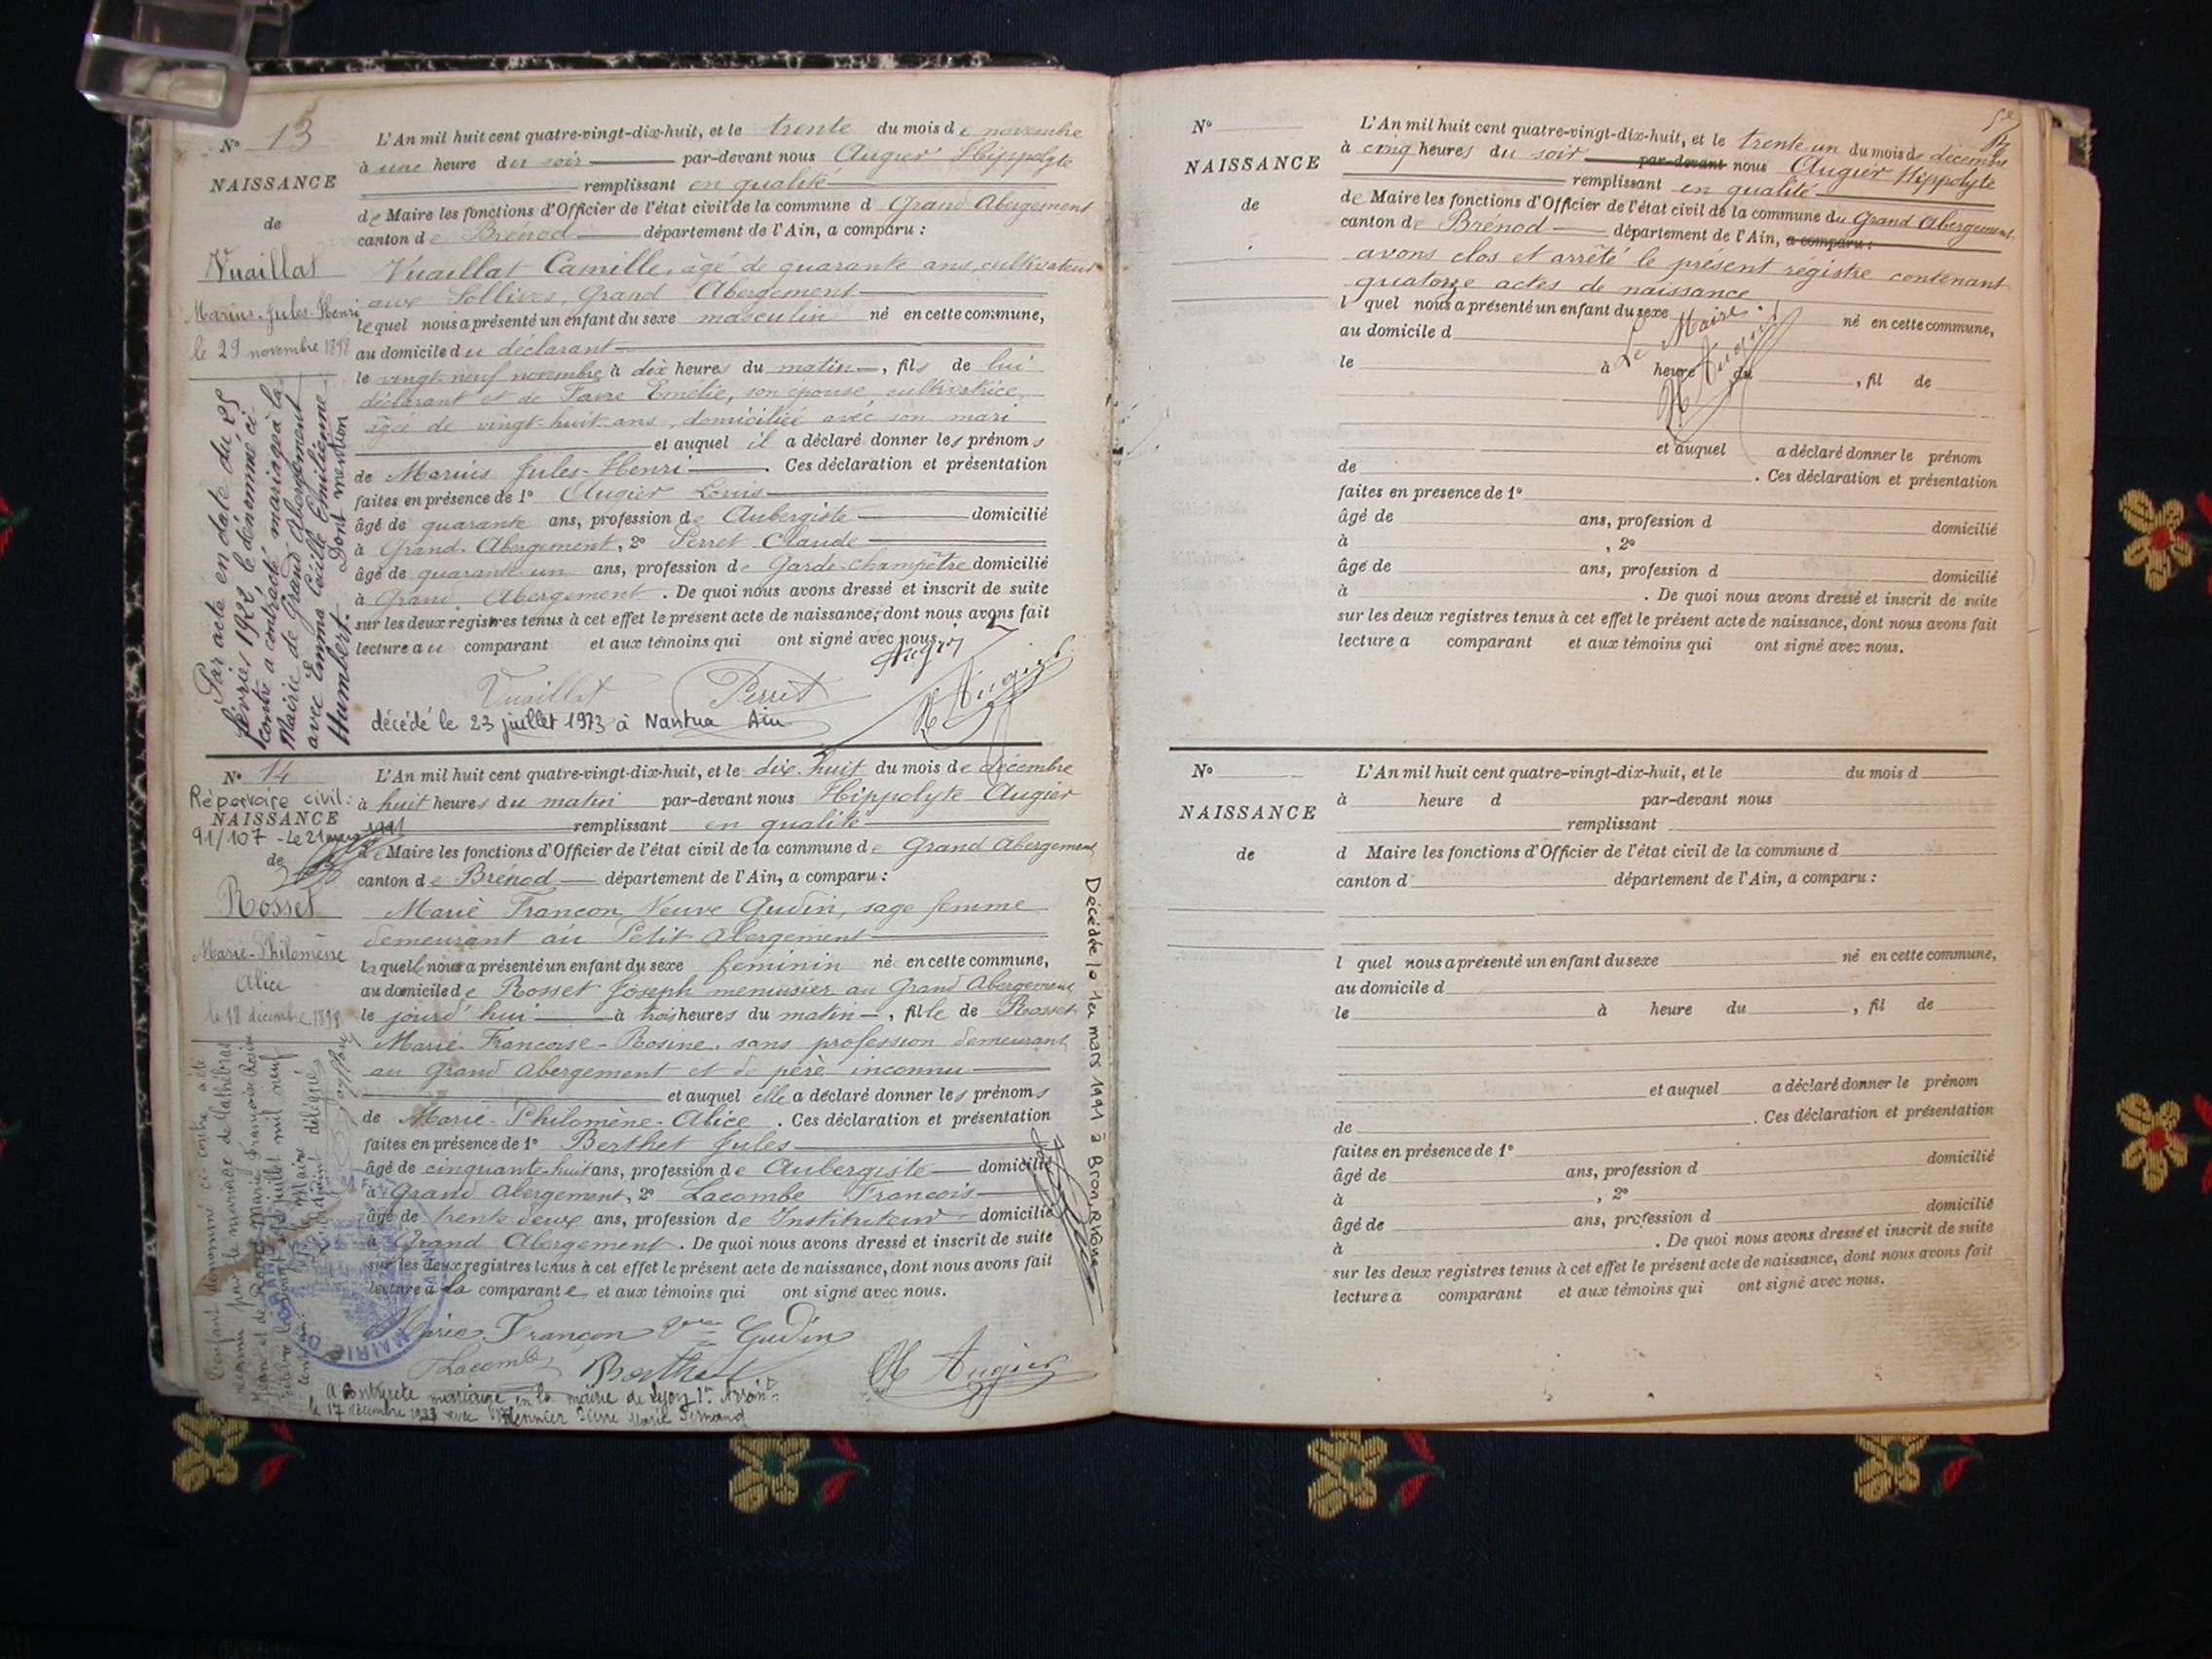 N° 13
NAISSANCE
de
Vuaillat
Marius-Jules-Henri
le 29 novembre 1898
Par acte en date du 25
février 1922, le dénommé ci-
contre a contracté mariage à la
Mairie de Grand Abergement
avec Emma Cécile Emilienne
Humbert. Dont mention
L'An mil huit cent quatre-vingt-dix-huit, et le trente du mois de novembre
à une heure du soir par-devant nous Augier Hippolyte
remplissant en qualité
de Maire les fonctions d'Officier de l'état civil de la commune d Grand Abergement
canton de Brénod département de l'Ain, a comparu :
Vuaillat Camille, âgé de quarante ans, cultivateur
aux Sollives, Grand Abergement
lequel nous a présenté un enfant du sexe masculin né en cette commune,
au domicile du déclarant
le vingt-neuf novembre à dix heures du matin, fils de lui
déclarant et de Favre Emélie, son épouse, cultivatrice,
âgée de vingt-huit ans, domiciliée avec son mari
et auquel il a déclaré donner les prénoms
de Marius Jules-Henri. Ces déclaration et présentation
faites en présence de 1° Augier Louis
âgé de quarante ans, profession de Aubergiste domicilié
à Grand-Abergement, 2° Perret Claude
âgé de quarante un ans, profession de Garde-champêtre domicilié
à Grand Abergement. De quoi nous avons dressé et inscrit de suite
sur les deux registres tenus à cet effet le présent acte de naissance, dont nous avons fait
lecture au comparant et aux témoins qui ont signé avec nous.
Vuaillat Perret Augier
H Augier
décédé le 23 juillet 1973 à Nantua Ain
N° 14
Répertoire civil :
NAISSANCE
91/107 - Le 21 mars 1991
de
Rosset
Marie-Philomène
Alice
le 18 décembre 1898
L'enfant dénommé ci-contre a été
reconnu par le mariage de
L'An mil huit cent quatre-vingt-dix-huit, et le dix-huit du mois de décembre
à huit heures du matin par-devant nous Hippolyte Augier
remplissant en qualité
de Maire les fonctions d'Officier de l'état civil de la commune de Grand Abergement
canton de Brénod département de l'Ain, a comparu :
Marie Francon Veuve Gudin, sage femme
demeurant au Petit Abergement
laquelle nous a présenté un enfant du sexe féminin né en cette commune,
au domicile de Rosset Joseph menuisier au Grand Abergement
le jourd'hui à trois heures du matin, fille de Rosset
Marie-Francoise-Rosine, sans profession demeurant
au Grand Abergement et de père inconnu
et auquel elle a déclaré donner les prénoms
de Marie-Philomène-Alice. Ces déclaration et présentation
faites en présence de 1° Berthet Jules
âgé de cinquante-huit ans, profession de Aubergiste domicilié
à Grand Abergement, 2° Lacombe Francois
âgé de trente deux ans, profession de Instituteur domicilié
à Grand Abergement. De quoi nous avons dressé et inscrit de suite
sur les deux registres tenus à cet effet le présent acte de naissance, dont nous avons fait
lecture à la comparante et aux témoins qui ont signé avec nous.
Marie Francon Vve Gudin
Lacombe Berthet H Augier
A contracté mariage en la mairie de Lyon 1er Arrondt
le 17 décembre 1923 avec Pierre Marie Fernand
Décédée le 1er mars 1991 à Bron Rhône
MAIRIE
N°
NAISSANCE
de
L'An mil huit cent quatre-vingt-dix-huit, et le trente un du mois de décembre
à cinq heures du soir par-devant nous Augier Hippolyte
remplissant en qualité
de Maire les fonctions d'Officier de l'état civil de la commune du Grand Abergement
canton de Brénod département de l'Ain, a comparu :
avons clos et arrêté le présent régistre contenant
quatorze actes de naissance
l quel nous a présenté un enfant du sexe né en cette commune,
Le Maire
H Augier
au domicile d
le à heure du , fil de
et auquel a déclaré donner le prénom
de . Ces déclaration et présentation
faites en présence de 1°
âgé de ans, profession d domicilié
à , 2°
âgé de ans, profession d domicilié
à . De quoi nous avons dressé et inscrit de suite
sur les deux registres tenus à cet effet le présent acte de naissance, dont nous avons fait
lecture a comparant et aux témoins qui ont signé avec nous.
N°
NAISSANCE
de
L'An mil huit cent quatre-vingt-dix-huit, et le du mois d
à heure d par-devant nous
remplissant
d Maire les fonctions d'Officier de l'état civil de la commune d
canton d département de l'Ain, a comparu :
l quel nous a présenté un enfant du sexe né en cette commune,
au domicile d
le à heure du , fil de
et auquel a déclaré donner le prénom
de . Ces déclaration et présentation
faites en présence de 1°
âgé de ans, profession d domicilié
à , 2°
âgé de ans, profession d domicilié
à . De quoi nous avons dressé et inscrit de suite
sur les deux registres tenus à cet effet le présent acte de naissance, dont nous avons fait
lecture a comparant et aux témoins qui ont signé avec nous.